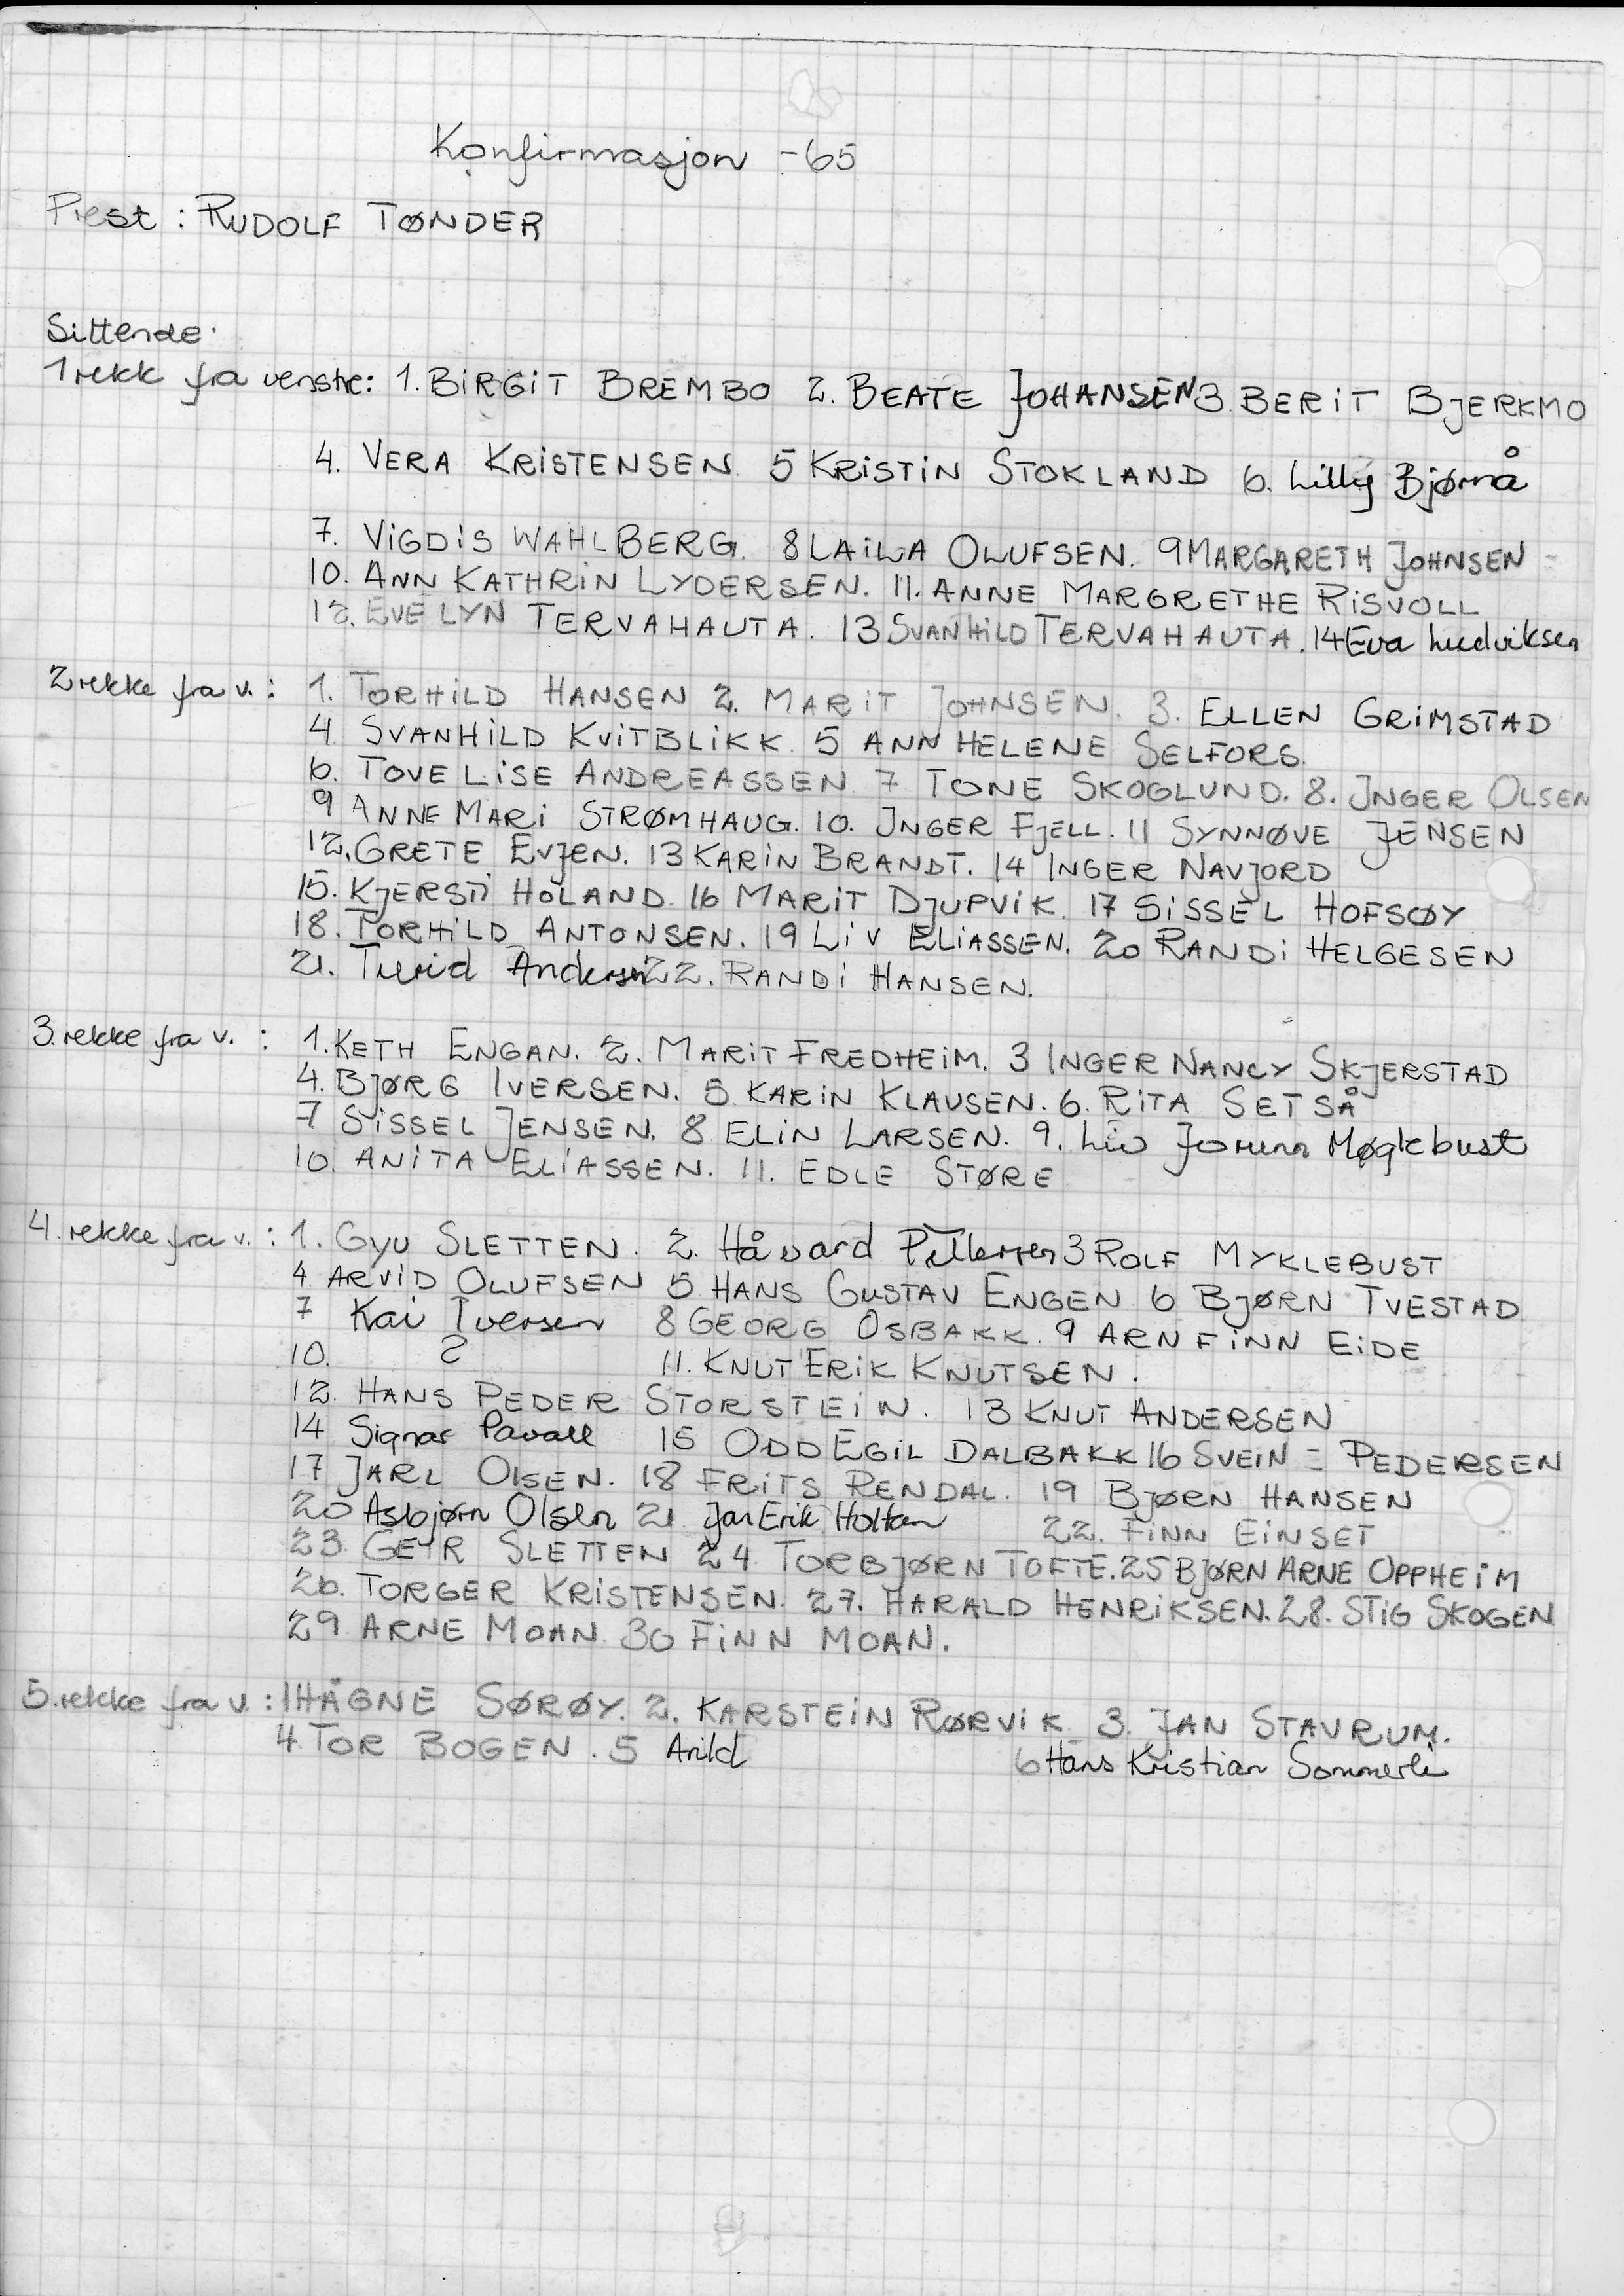 Konfirmasjon -65
Prest : RUDOLF TØNDER
Sittende:
1 rekk fra venstre: 1. BIRGIT BREMBO 2. BEATE JOHANSEN 3. BERIT BJERKMO
4. VERA KRISTENSEN. 5 KRISTIN STOKLAND 6. Lilly Bjørnå
7. VIGDIS WAHLBERG. 8 LAILA OLUFSEN. 9 MARGARETH JOHNSEN
10. ANN KATHRIN LYDERSEN. 11. ANNE MARGRETHE RISVOLL
12. EVELYN TERVAHAUTA. 13 SVANHILD TERVAHAUTA. 14 Eva Ludviksen
2 rekke fra v. : 1. TORHILD HANSEN 2. MARIT JOHNSEN. 3. ELLEN GRIMSTAD
4 SVANHILD KVITBLIKK. 5 ANN HELENE SELFORS.
6. TOVE LISE ANDREASSEN 7 TONE SKOGLUND. 8. INGER OLSEN
9 ANNE MARI STRØMHAUG. 10. INGER FJELL. 11 SYNNØVE JENSEN
12. GRETE EVJEN. 13 KARIN BRANDT. 14 INGER NAVJORD
15. KJERSTI HOLAND. 16 MARIT DJUPVIK. 17 SISSEL HOFSØY
18. TORHILD ANTONSEN. 19 LIV ELIASSEN. 20 RANDI HELGESEN
21. Turid Andersen 22. RANDI HANSEN.
3. rekke fra v. : 1. KETH ENGAN. 2. MARIT FREDHEIM. 3 INGER NANCY SKJERSTAD
4. BJØRG IVERSEN. 5 KARIN KLAUSEN. 6. RITA SETSÅ
7 SISSEL JENSEN. 8. ELIN LARSEN. 9. Liv Jorunn Møglebust
10. ANITA ELIASSEN. 11. EDLE STØRE
4. rekke fra v. : 1. GYU SLETTEN. 2. Håvard Pettersen 3 ROLF MYKLEBUST
4 ARVID OLUFSEN 5 HANS GUSTAV ENGEN 6 BJØRN TVESTAD
7 Kai Iversen 8 GEORG OSBAKK. 9 ARNFINN EIDE
10. ? 11. KNUT ERIK KNUTSEN.
12. HANS PEDER STORSTEIN. 13 KNUT ANDERSEN
14 Signar Pavall 15 ODD EGIL DALBAKK 16 SVEIN = PEDERSEN
17 JARL OlSEN. 18 FRITS RENDAL. 19 BJØRN HANSEN
20 Asbjørn Olsen 21 Jan Erik Holtan 22. FINN EINSET
23. GEIR SLETTEN 24. TORBJØRN TOFTE. 25 BJØRN ARNE OPPHEIM
26. TORGER KRISTENSEN. 27. HARALD HENRIKSEN. 28. STIG SKOGEN
29 ARNE MOAN. 30 FINN MOAN.
5. rekke fra v. : 1 HÅGNE SØRØY. 2. KARSTEIN RØRVIK. 3. JAN STAVRUM.
4. TOR BOGEN. 5 Arild 6 Hans Kristian Sommerli